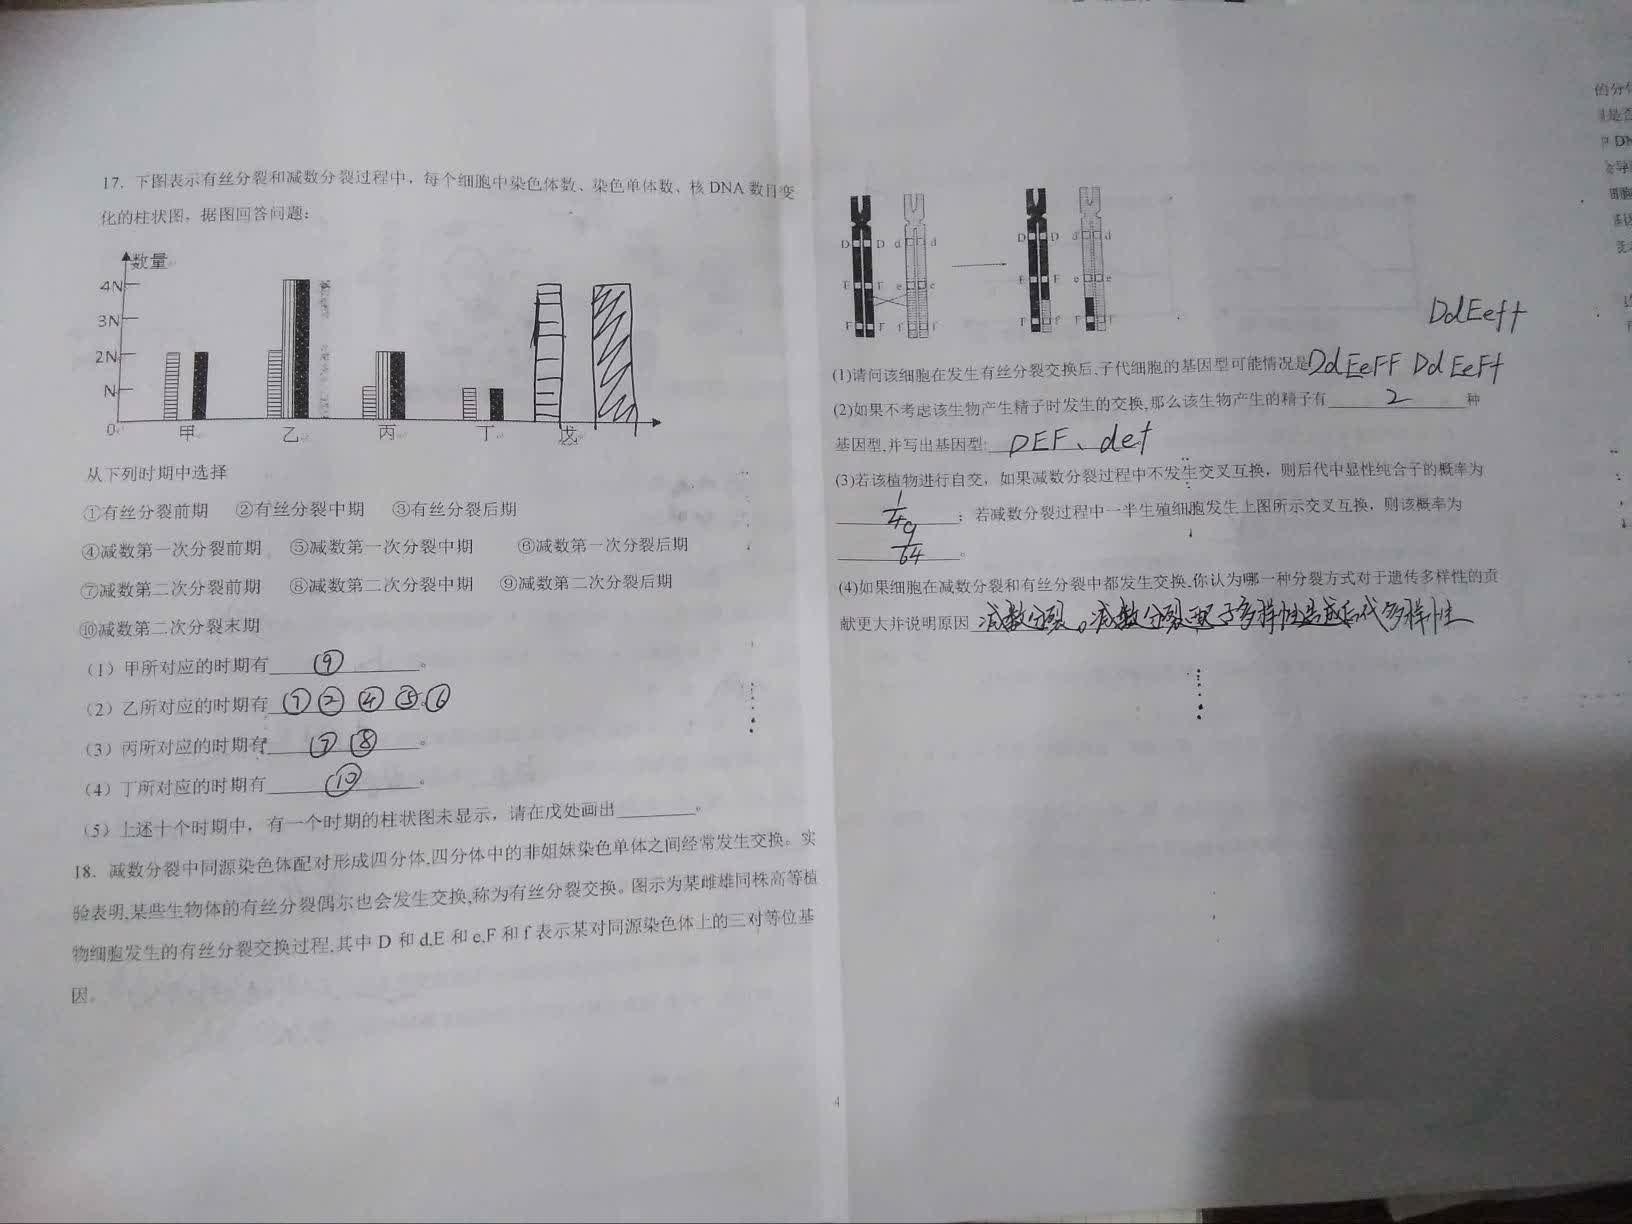 17. 下图表示有丝分裂和减数分裂过程中，每个细胞中染色体数、染色单体数、核 DNA 数目变
化的柱状图，据图回答问题：
数量
4N
3N
2N
N
0
甲 乙 丙 丁 戊
从下列时期中选择
①有丝分裂前期 ②有丝分裂中期 ③有丝分裂后期
④减数第一次分裂前期 ⑤减数第一次分裂中期 ⑥减数第一次分裂后期
⑦减数第二次分裂前期 ⑧减数第二次分裂中期 ⑨减数第二次分裂后期
⑩减数第二次分裂末期
（1）甲所对应的时期有 ⑨ 。
（2）乙所对应的时期有 ① ② ④ ⑤ ⑥
（3）丙所对应的时期有 ⑦ ⑧ 。
（4）丁所对应的时期有 ⑩ 。
（5）上述十个时期中，有一个时期的柱状图未显示，请在戊处画出 。
18. 减数分裂中同源染色体配对形成四分体,四分体中的非姐妹染色单体之间经常发生交换。实
验表明,某些生物体的有丝分裂偶尔也会发生交换,称为有丝分裂交换。图示为某雌雄同株高等植
物细胞发生的有丝分裂交换过程,其中 D 和 d,E 和 e,F 和 f 表示某对同源染色体上的三对等位基
因。
D D d d D D d d
E E e e E E e e
F F f f F f F f
DdEeff
(1)请问该细胞在发生有丝分裂交换后,子代细胞的基因型可能情况是 DdEeFF DdEeFf
(2)如果不考虑该生物产生精子时发生的交换,那么该生物产生的精子有 2 种
基因型,并写出基因型: DEF、def
(3)若该植物进行自交，如果减数分裂过程中不发生交叉互换，则后代中显性纯合子的概率为
1/4 ；若减数分裂过程中一半生殖细胞发生上图所示交叉互换，则该概率为
9/64 。
(4)如果细胞在减数分裂和有丝分裂中都发生交换,你认为哪一种分裂方式对于遗传多样性的贡
献更大并说明原因 减数分裂。减数分裂配子多样性造成后代多样性
4
的分
是否
DN